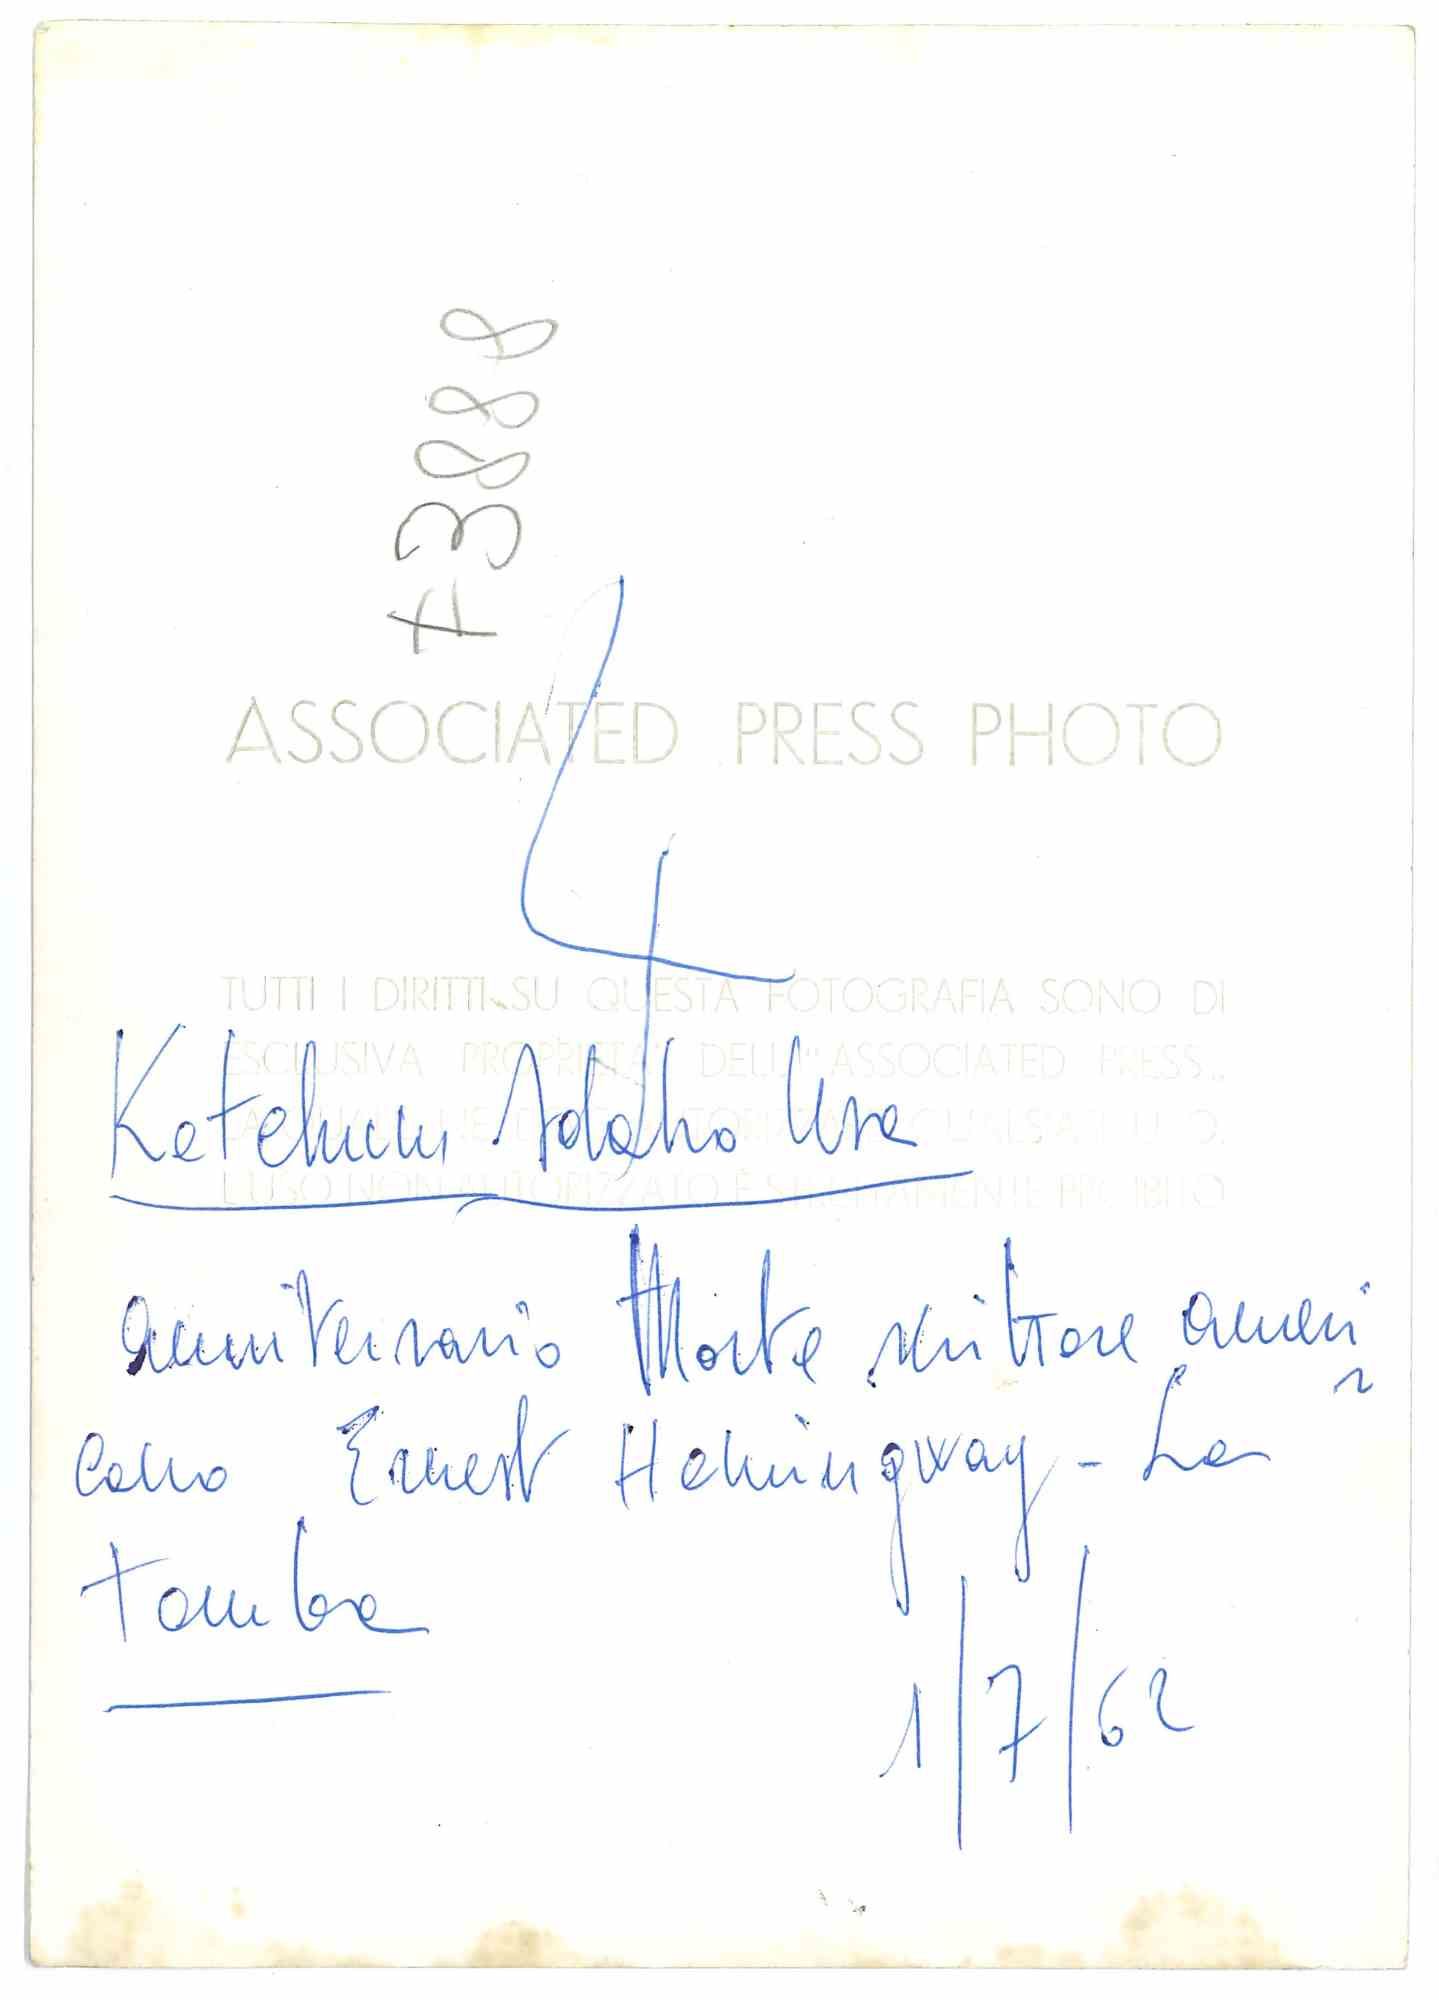 73888
4
ASSOCIATED PRESS PHOTO
TUTTI I DIRITTI SU QUESTA FOTOGRAFIA SONO DI
ESCLUSIVA PROPRIETA' DELL' "ASSOCIATED PRESS"
L'USO NON AUTORIZZATO È STRETTAMENTE PROIBITO
Ketchum Idaho Usa
anniversario Morte scrittore ameri
cano Ernest Hemingway - La
tomba
1/7/62